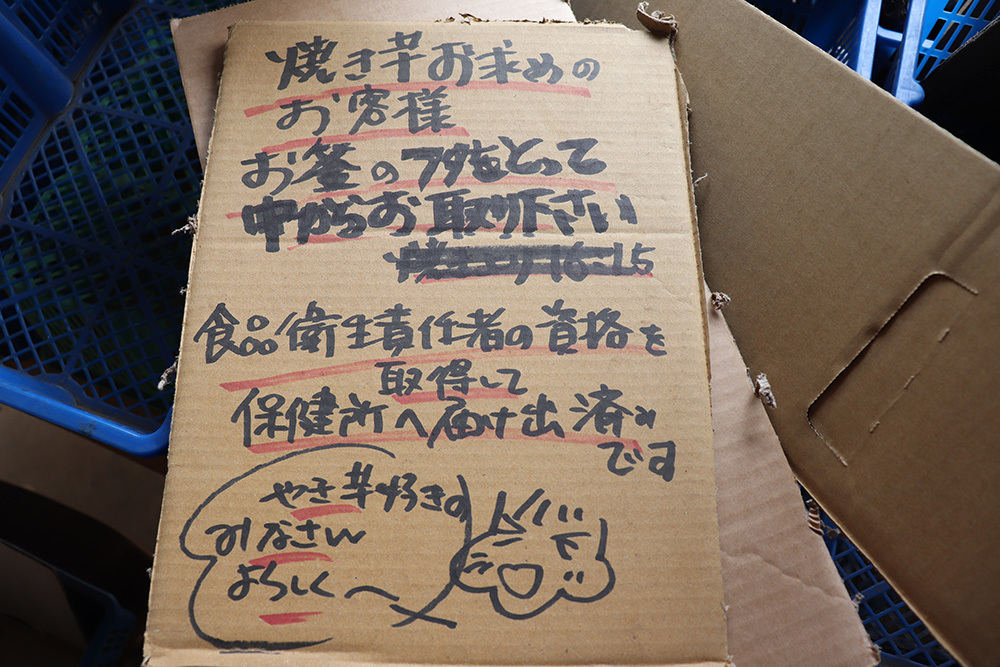 焼き芋お求めの
お客様
お釜のフタをとって
中からお取り下さい
食品衛生責任者の資格を
取得して
保健所へ届け出済み
です
やき芋好きの
みなさん
よろしく〜